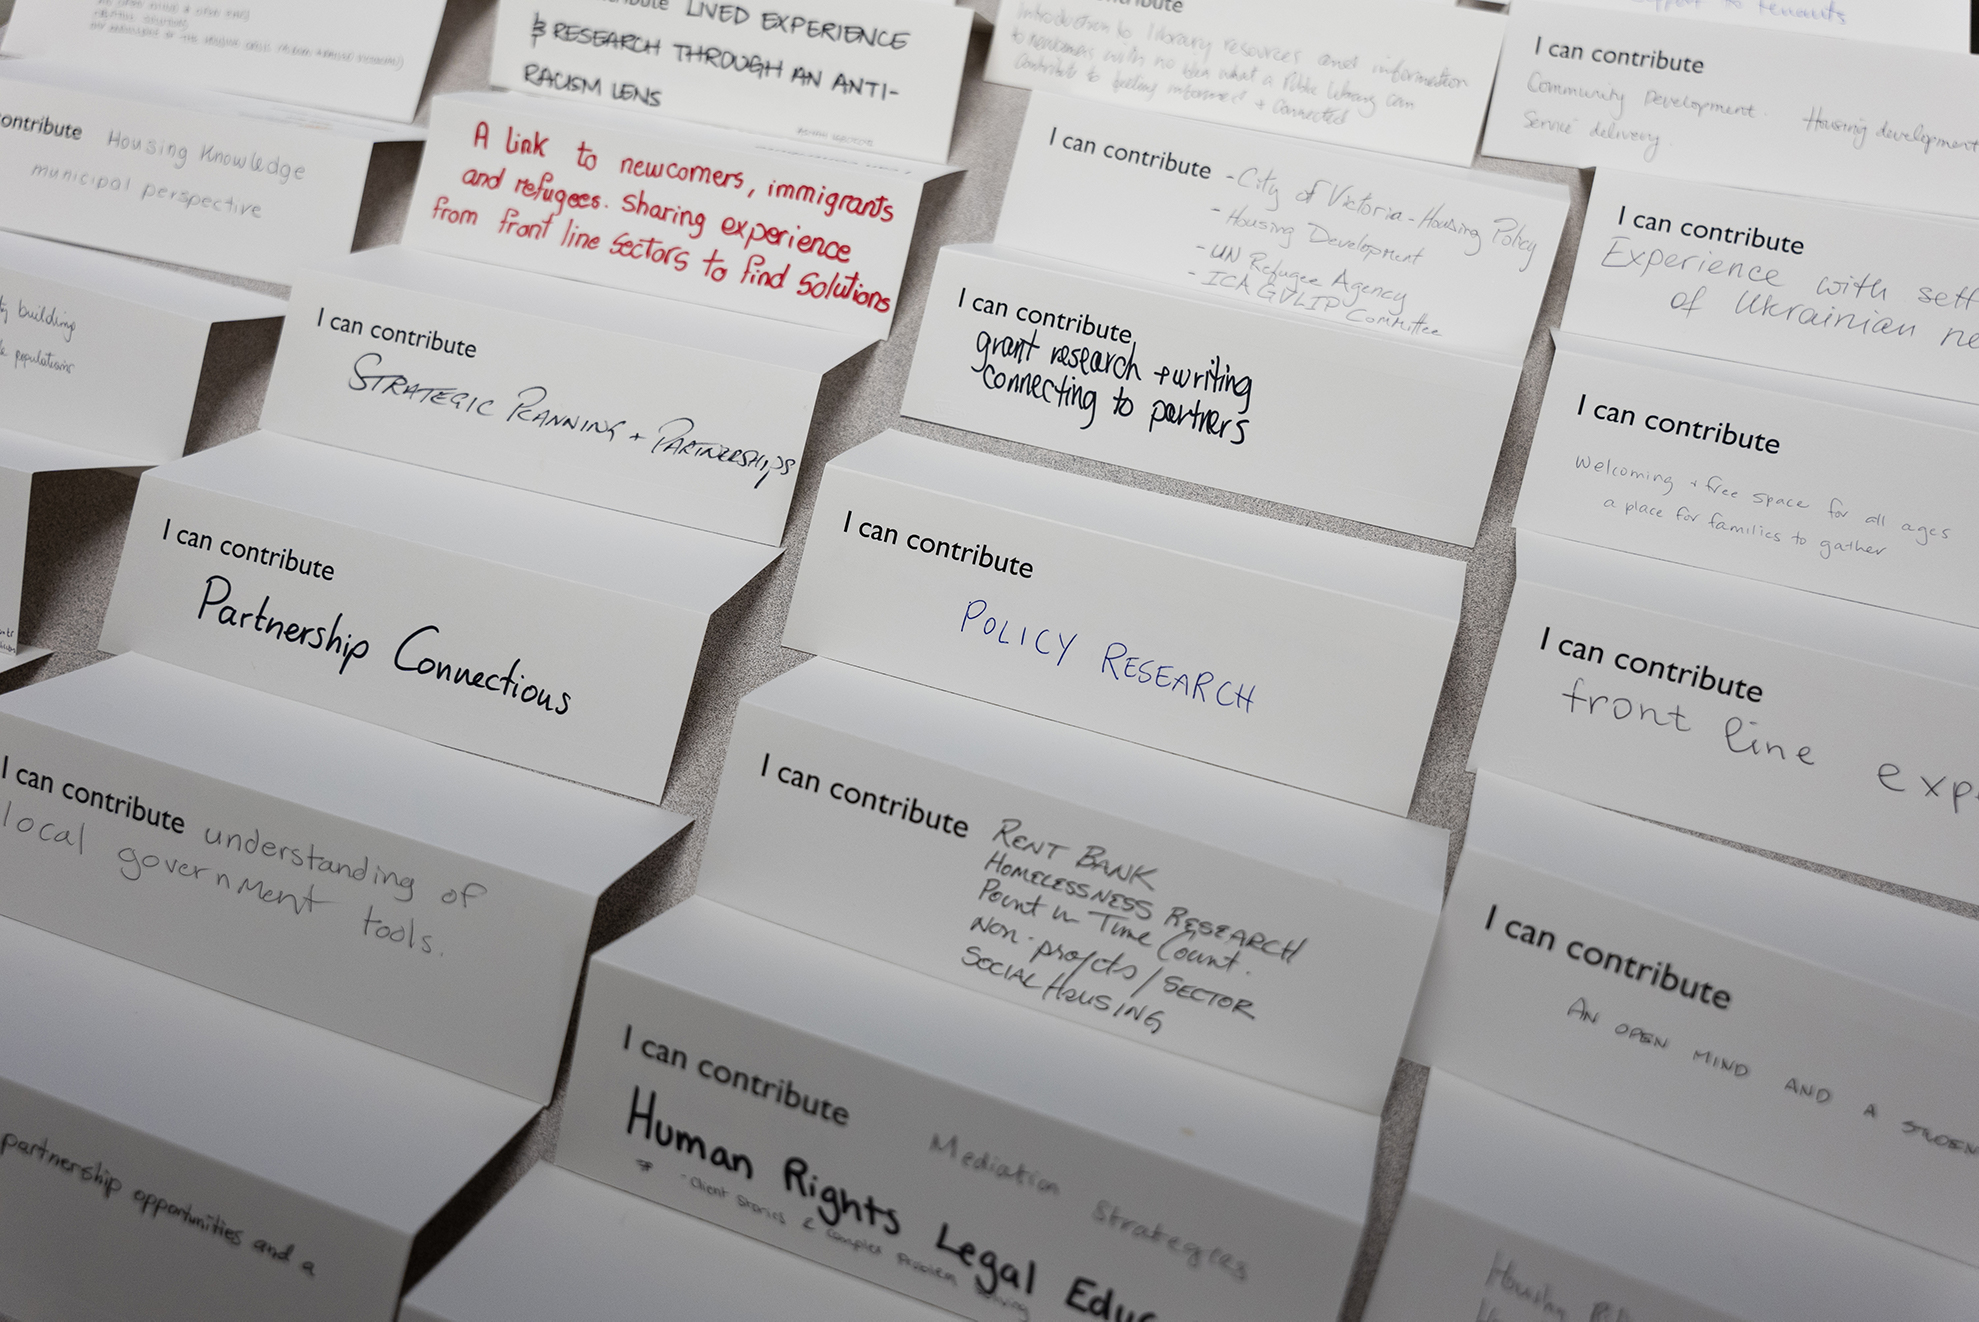 LIVED EXPERIENCE
& RESEARCH THROUGH AN ANTI-
RACISM LENS
Introduction to library resources and information
to newcomers with no idea what a Public Library can
contribute to feeling informed + connected
to tenants
I can contribute
Community Development. Housing development
Service delivery.
contribute Housing Knowledge
municipal perspective
A link to newcomers, immigrants
and refugees. Sharing experience
from front line sectors to find solutions
I can contribute - City of Victoria - Housing Policy
- Housing Development
- UN Refugee Agency
- ICA GVLIP Committee
I can contribute
Experience with
of Ukrainian
building
populations
I can contribute
STRATEGIC PLANNING + PARTNERSHIPS
I can contribute
grant research + writing
connecting to partners
I can contribute
Welcoming + free space for all ages
a place for families to gather
I can contribute
Partnership Connections
I can contribute
POLICY RESEARCH
I can contribute
front line
I can contribute understanding of
local government tools.
I can contribute RENT BANK
HOMELESSNESS RESEARCH
Point in Time Count.
Non-profits/SECTOR
SOCIAL HOUSING
I can contribute
AN OPEN MIND AND A
partnership opportunities and a
I can contribute Mediation Strategies
Human Rights Legal
- Client Stories & complex problem solving
Housing